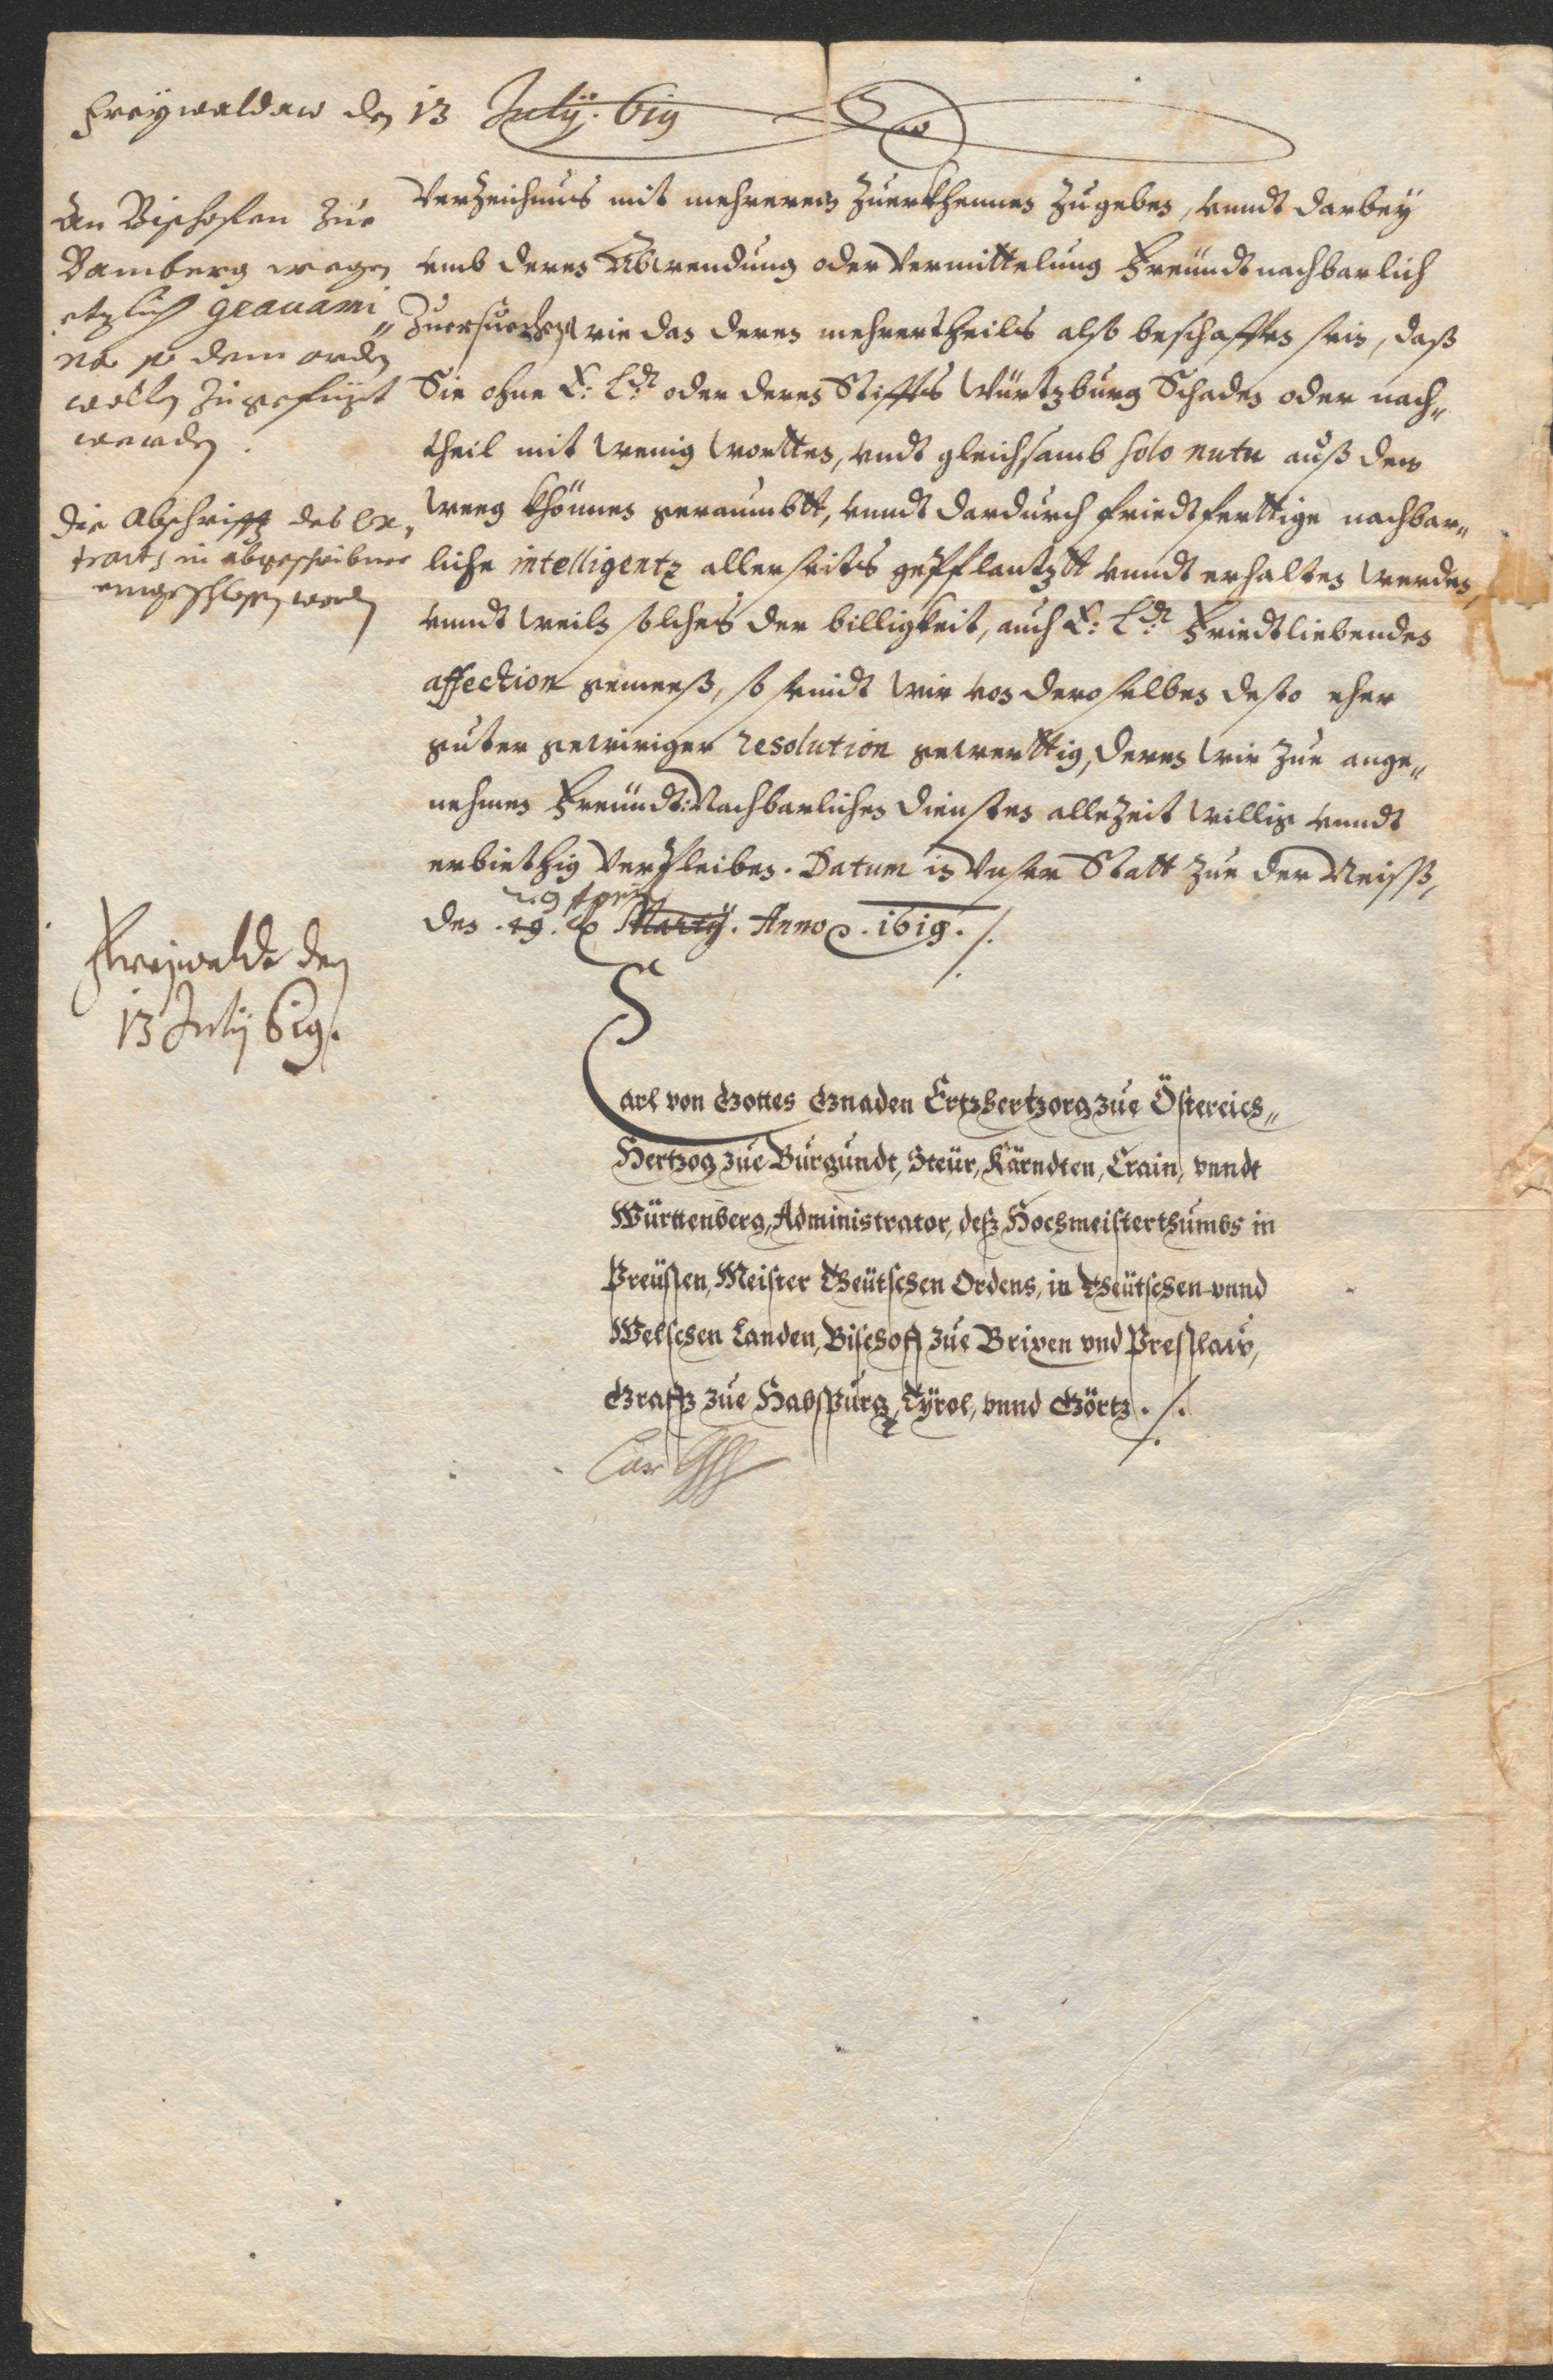 Freywaldaw den 13 July. 619
An Bischofen Zue
Bamberg wegen
etzlich grauami„
na so dem orden
wollen Zugefügt
werden.
die Abschrifft des Ex„
tracts in abgeschribner
eingeschlossen worden
Freywalde den
13 July 619.
Verzeichnus mit mehrerem Zuerkhennen Zugeben, vnndt darbey
vmb deren Abwendung oder Vermittelung Freündtnachbarlich
Zuersuechen, wie dan deren mehrertheils also beschaffen sein, daß
Sie ohne E: Ld: oder deren Stiffts Würtzburg Schaden oder nach„
theil mit wenig wortten, vndt gleichsamb solo nutu auß dem
weeg khönnen geraumbtt, vnndt dardurch friedtferttige nachbar„
liche intelligentz allerseits gepflantztt vnndt erhalten werden,
vnndt weiln solches der billigkeit, auch E: Ld: Friedtliebenden
affection gemeeß, so seindt wir von deroselben desto eher
guter gewiriger resolution gewerttig, deren wir zue ange„
nehmen Freündt: Nachbarlichen diensten allezeit willig vnndt
erbiethig Verpleiben. Datum in Vnser Statt zue der Neiss,
29 April
den .19. Marty. Anno .1619./.
Carl von Gottes Gnaden Ertzhertzorg zue Östereich„
Hertzog zue Burgundt, Steür, Kärndten, Crain, vnndt
Württenberg, Administrator, deß Hochmeisterthumbs in
Preüssen, Meister Theütschen Ordens, in Theütschen vnnd
Welschen Landen, Bischoff zue Brixen vnd Presslaw,
Graff zue Habspurg, Tyrol, vnnd Görtz ./.
Carl